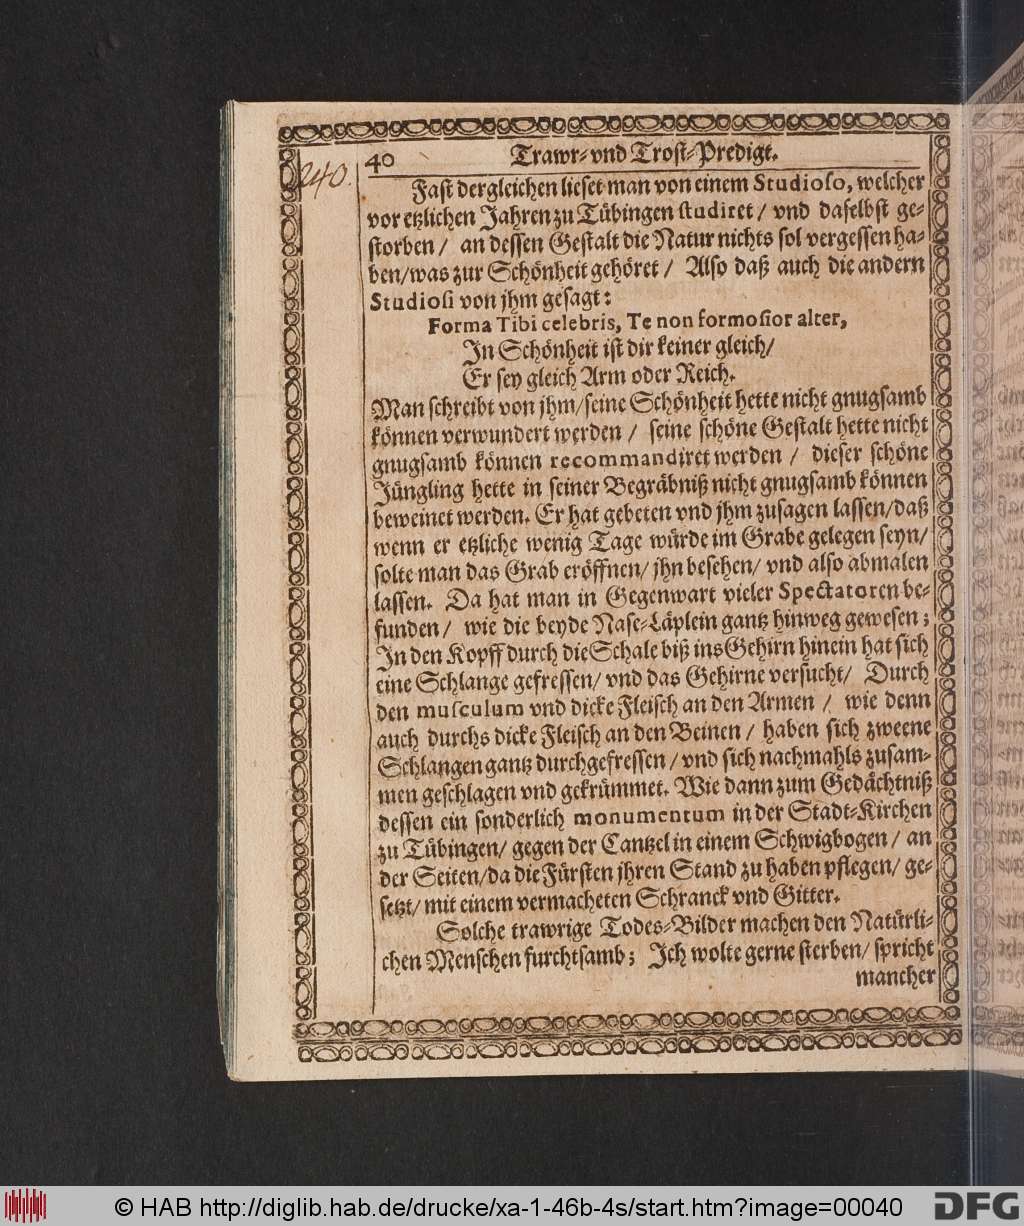 240.
40 Trawr-vnd Trost-Predigt.
Fast dergleichen lieset man von einem Studioso, welcher
vor etzlichen Jahren zu Tübingen studiret / vnd daselbst ge-
storben / an dessen Gestalt die Natur nichts sol vergessen ha-
ben/was zur Schönheit gehöret / Also daß auch die andern
Studiosi von jhm gesagt:
Forma Tibi celebris, Te non formosior alter,
In Schönheit ist dir keiner gleich/
Er sey gleich Arm oder Reich.
Man schreibt von jhm/seine Schönheit hette nicht gnugsamb
können verwundert werden / seine schöne Gestalt hette nicht
gnugsamb können recommandiret werden / dieser schöne
Jüngling hette in seiner Begräbniß nicht gnugsamb können
beweinet werden. Er hat gebeten vnd jhm zusagen lassen/daß
wenn er etzliche wenig Tage würde im Grabe gelegen seyn/
solte man das Grab eröffnen/ jhn besehen/ vnd also abmalen
lassen. Da hat man in Gegenwart vieler Spectatoren be-
funden / wie die beyde Nase-Läplein gantz hinweg gewesen;
In den Kopff durch die Schale biß ins Gehirn hinein hat sich
eine Schlange gefressen/ vnd das Gehirne versucht/ Durch
den musculum vnd dicke Fleisch an den Armen / wie denn
auch durchs dicke Fleisch an den Beinen / haben sich zweene
Schlangen gantz durchgefressen / vnd sich nachmahls zusam-
men geschlagen vnd gekrümmet. Wie dann zum Gedächtniß
dessen ein sonderlich monumentum in der Stadt-Kirchen
zu Tübingen/ gegen der Cantzel in einem Schwigbogen / an
der Seiten/da die Fürsten jhren Stand zu haben pflegen/ ge-
setzt/ mit einem vermacheten Schranck vnd Gitter.
Solche trawrige Todes-Bilder machen den Natürli-
chen Menschen furchtsamb; Ich wolte gerne sterben/ spricht
mancher
© HAB http://diglib.hab.de/drucke/xa-1-46b-4s/start.htm?image=00040
DFG